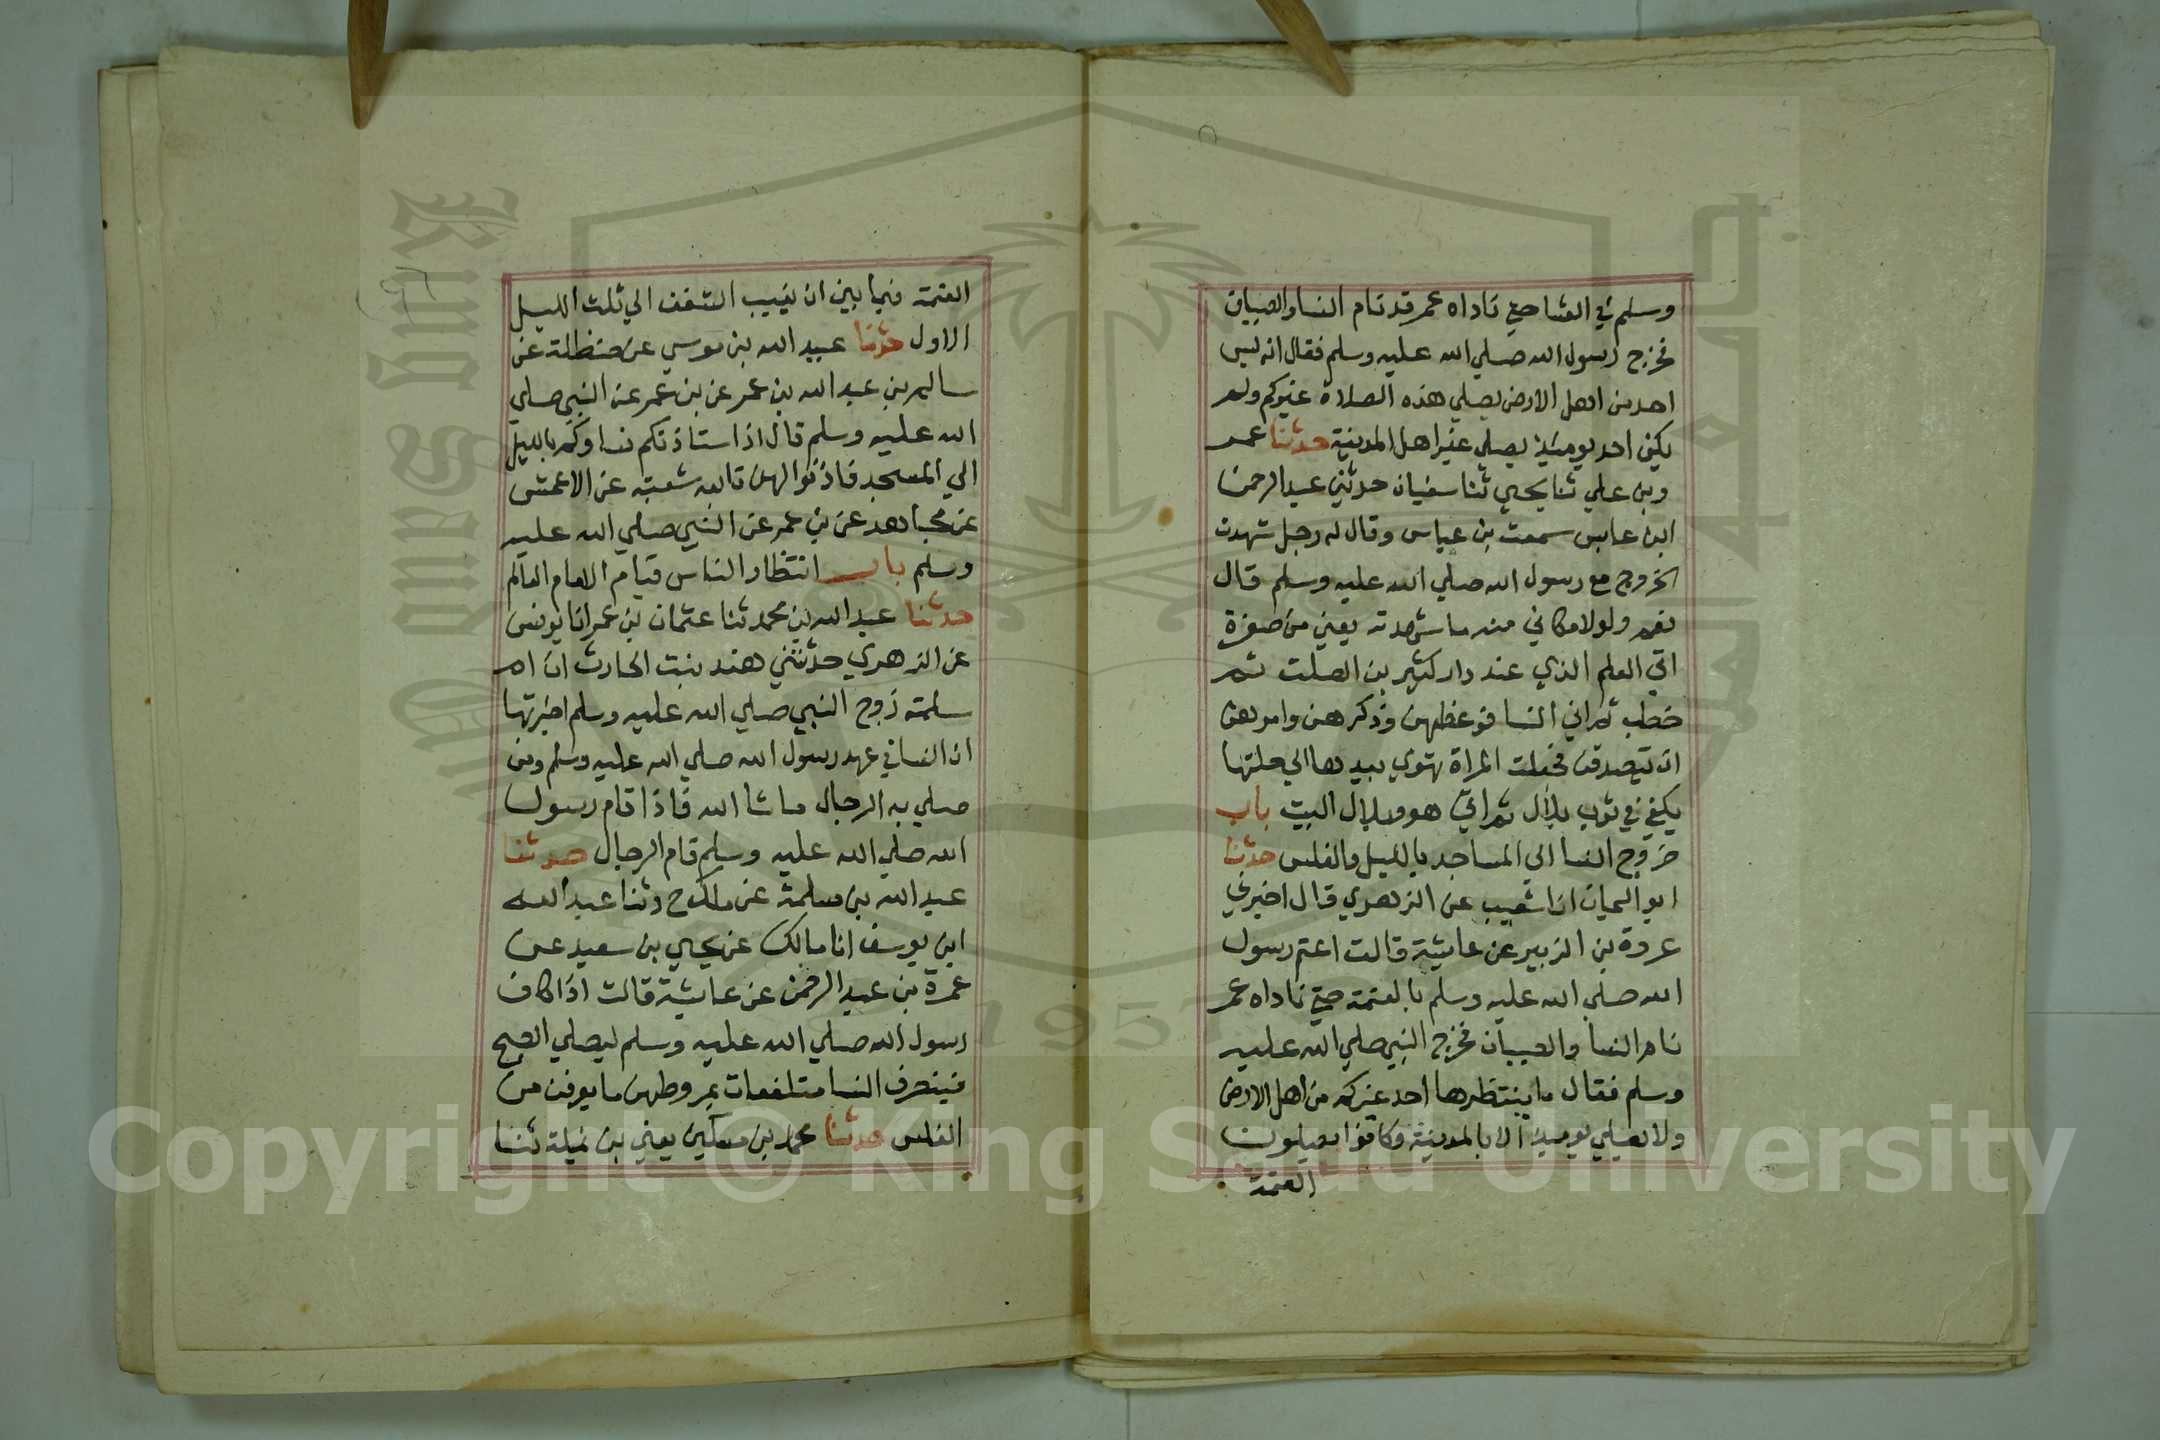 وسلم في العشا حتي ناداه عمر قد نام النسا والصبيان
فخرج رسول الله صلي الله عليه وسلم فقال انه ليس
احد من اهل الارض يصلي هذه الصلاة غيركم ولم
يكن احد يوميئذ يصلي غير اهل المدينة حدثنا عمـ
ـرو بن علي ثنا يحيي ثنا سفيان حدثني عبد الرحمن
ابن عابس سمعت بن عباس وقال له رجل شهدت
الخروج مع رسول الله صلي الله عليه وسلم قال
نعم ولولا مكاني منه ما شهدته يعني من صغره
اتي العلم الذي عند دار كثير بن الصلت ثم
خطب ثم اتي النسا فوعظهن وذكرهن وامرهن
ان يتصدقن فجعلت المراة تهوي بيدها الي حلقها
في ثوب بلال ثم اتي هو وبلال البيت باب
خروج النسا الي المساجد بالليل والغلس حدثنا
ابو اليمان انا شعيب عن الزهري قال اخبرني
عروة بن الزبير عن عايشة قالت اعتم رسول
الله صلي الله عليه وسلم بالعتمة حتي ناداه عمر
نام النسا والصبيان فخرج النبي صلي الله عليه
وسلم فقال ما ينتظرها احد غيركم من اهل الارض
ولا يصلي يوميذ الا بالمدينة وكانوا يصلون
العتمة
العتمة فيما بين ان يغيب الشفق الي ثلث الليل
الاول حدثنا عبيد الله بن موسي عن حنظلة عن
سالم بن عبد الله بن عمر عن بن عمر عن النبي صلي
الله عليه وسلم قال اذا استاذنكم نساوكم بالليل
الي المسجد فاذنوا لهن تابعه شعبة عن الاعمش
عن مجاهد عن بن عمر عن النبي صلي الله عليه
وسلم باب انتظار الناس قيام الامام العالم
حدثنا عبد الله بن محمد ثنا عثمان بن عمر انا يونس
عن الزهري حدثتني هند بنت الحارث ان ام
سلمة زوج النبي صلي الله عليه وسلم اخبرتها
ان النسا في عهد رسول الله صلي الله عليه وسلم ومن
صلي به الرجال ما شا الله فاذا قام رسول
الله صلي الله عليه وسلم قام الرجال حدثنا
عبد الله بن مسلمة عن مالك ح وثنا عبد الله
ابن يوسف انا مالك عن يحيي بن سعيد عن
عمرة بن عبد الرحمن عن عايشة قالت اذا كان
رسول الله صلي الله عليه وسلم ليصلي الصبح
فينصرف النسا متلفعات بمروطهن ما يعرفن من
الغلس حدثنا محمد بن مسكين يعني بن نميلة ثنا
King Saud University
1957
Copyright © King Saud University